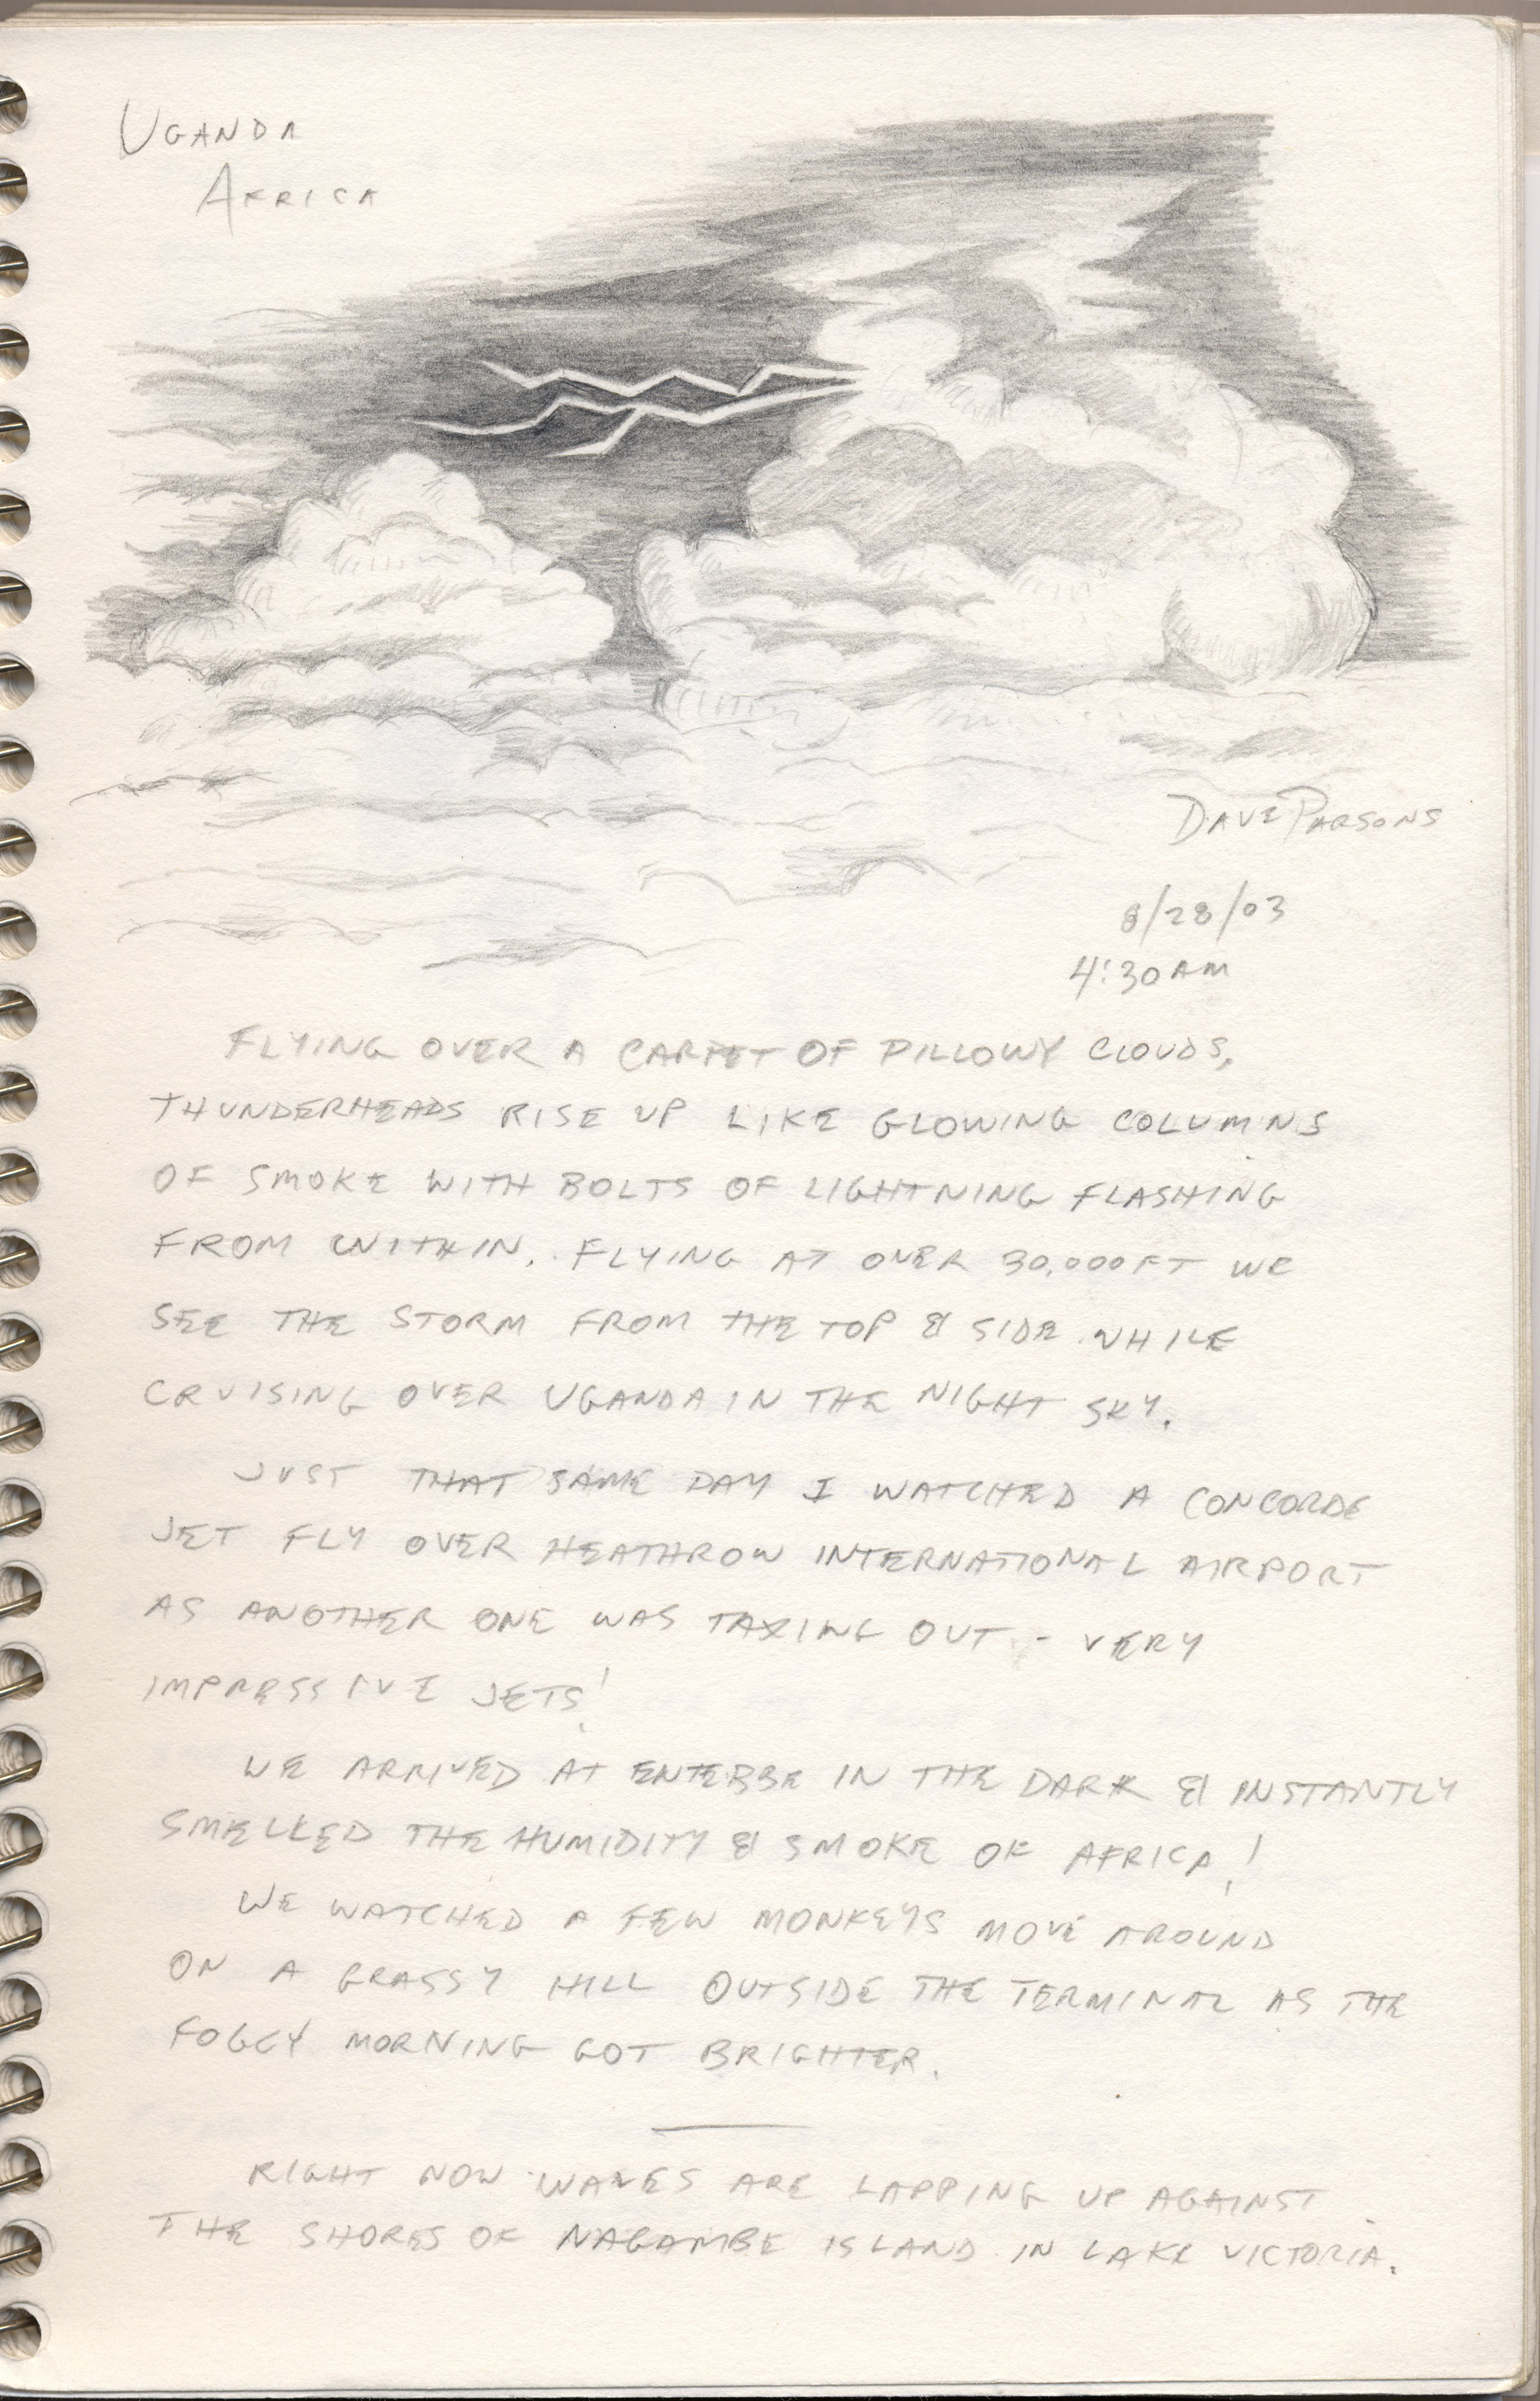 UGANDA
AFRICA
DAVE PARSONS
8/28/03
4:30 AM
FLYING OVER A CARPET OF PILLOWY CLOUDS,
THUNDERHEADS RISE UP LIKE GLOWING COLUMNS
OF SMOKE WITH BOLTS OF LIGHTNING FLASHING
FROM WITHIN. FLYING AT OVER 30,000 FT WE
SEE THE STORM FROM THE TOP & SIDE WHILE
CRUISING OVER UGANDA IN THE NIGHT SKY.
JUST THAT SAME DAY I WATCHED A CONCORDE
JET FLY OVER HEATHROW INTERNATIONAL AIRPORT
AS ANOTHER ONE WAS TAXING OUT - VERY
IMPRESSIVE JETS!
WE ARRIVED AT ENTEBBE IN THE DARK & INSTANTLY
SMELLED THE HUMIDITY & SMOKE OF AFRICA!
WE WATCHED A FEW MONKEYS MOVE AROUND
ON A GRASSY HILL OUTSIDE THE TERMINAL AS THE
FOGGY MORNING GOT BRIGHTER.
RIGHT NOW WAVES ARE LAPPING UP AGAINST
THE SHORES OF ISLAND IN LAKE VICTORIA.